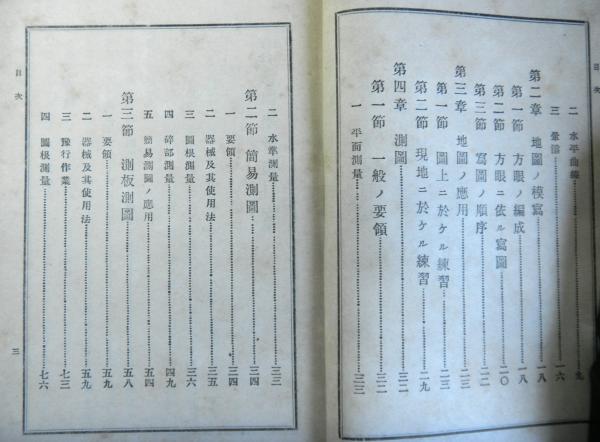 目次
二 水平曲線……九
三 暈滃……一六
第二章 地圖ノ模寫……一八
第一節 方眼ノ編成……一八
第二節 方眼ニ依ル寫圖……二〇
第三節 寫圖ノ順序……二二
第三章 地圖ノ應用……二三
第一節 圖上ニ於ケル練習……二三
第二節 現地ニ於ケル練習……二九
第四章 測圖……三二
第一節 一般ノ要領……三二
一 平面測量……三二
二 水準測量……三三
第二節 簡易測圖……三四
一 要領……三四
二 器械及其使用法……三五
三 圖根測量……三六
四 碎部測量……四九
五 簡易測圖ノ應用……五四
第三節 測板測圖……五八
一 要領……五九
二 器械及其使用法……五九
三 豫行作業……七三
四 圖根測量……七六
目次
三